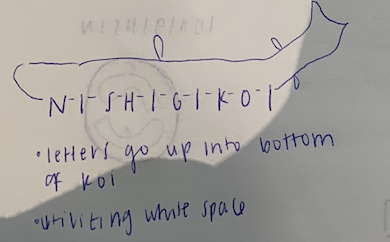 N-I-S-H-I-G-I-K-O-I
•letters go up into bottom
of koi
•utiliting white space